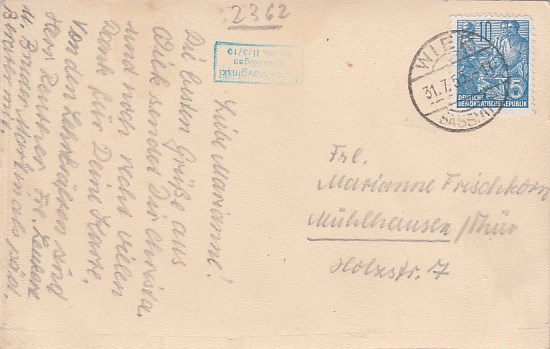 2362
Liebe Marianne!
Die besten Grüße aus
Wiek sendet Dir Christa.
und noch recht vielen
Dank für Deine Karte.
Von den Lehrkräften sind
Herr Zentner Frl.
u. Bruder Martin als
WIEK
31.7.
DEUTSCHE
DEMOKRATISCHE REPUBLIK
15
Frl.
Marianne Frischkorn
Mühlhausen /Thür
Holzstr. 7